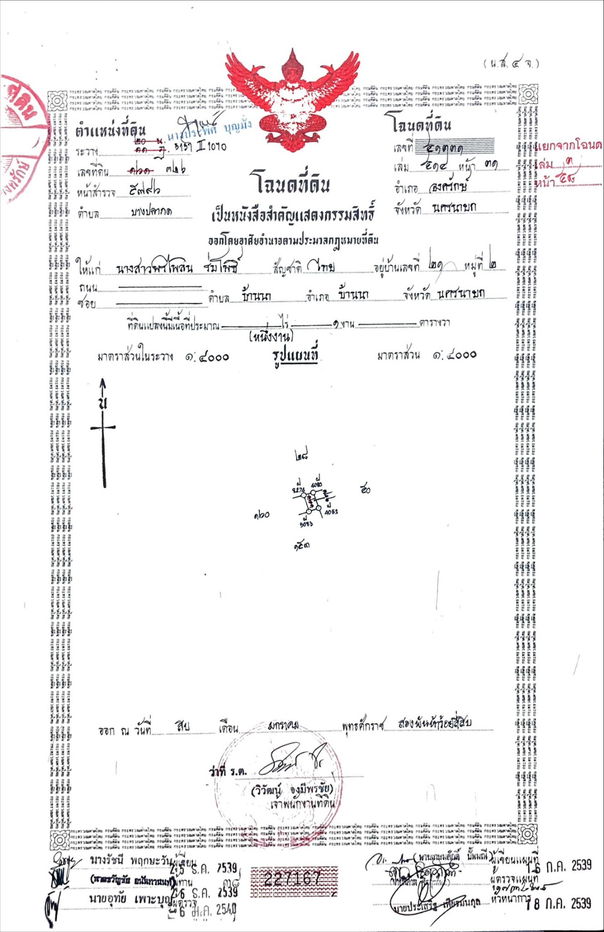 (น.ส.๔ จ.)
ตำแหน่งที่ดิน
โฉนดที่ดิน
ระวาง ๕๑๓๗ II 1070
เลขที่ ๔๑๓๓๑
แยกจากโฉนด
เลขที่ดิน ๓๒๖
เล่ม ๔๑๔ หน้า ๓๑
เล่ม ๓
หน้าสำรวจ
อำเภอ องครักษ์
หน้า
ตำบล บางปลากด
จังหวัด นครนายก
โฉนดที่ดิน
เป็นหนังสือสำคัญแสดงกรรมสิทธิ์
ออกโดยอาศัยอำนาจตามประมวลกฎหมายที่ดิน
ให้แก่ นางสาวพิไลพิลน ร่มโพธิ์ สัญชาติ ไทย อยู่บ้านเลขที่ ๒๑ หมู่ที่ ๒
ถนน
ซอย ตำบล บ้านนา อำเภอ บ้านนา จังหวัด นครนายก
ที่ดินแปลงนี้มีเนื้อที่ประมาณ ไร่ ๑ งาน ตารางวา
(หนึ่งงาน)
มาตราส่วนในระวาง ๑:๔๐๐๐ รูปแผนที่ มาตราส่วน ๑:๔๐๐๐
น
๒๘
๕๐
๑๖๐
๑๕๓
ออก ณ วันที่ สิบ เดือน มกราคม พุทธศักราช สองพันห้าร้อยสี่สิบ
ว่าที่ ร.ต.
(วิวัฒน์ องมีพรชัย)
เจ้าพนักงานที่ดิน
นางรัชนี พฤกษะวัน ผู้เขียน
ธ.ค. 2539
227167
ผู้เขียนแผนที่
16 ก.ค. 2539
ผู้ตรวจแผนที่
นายอุทัย เพาะบุญ ผู้ตรวจ
6 ม.ค. 2540
นายประเสริฐ เพียรมนกุล
หัวหน้าการ
18 ก.ค. 2539